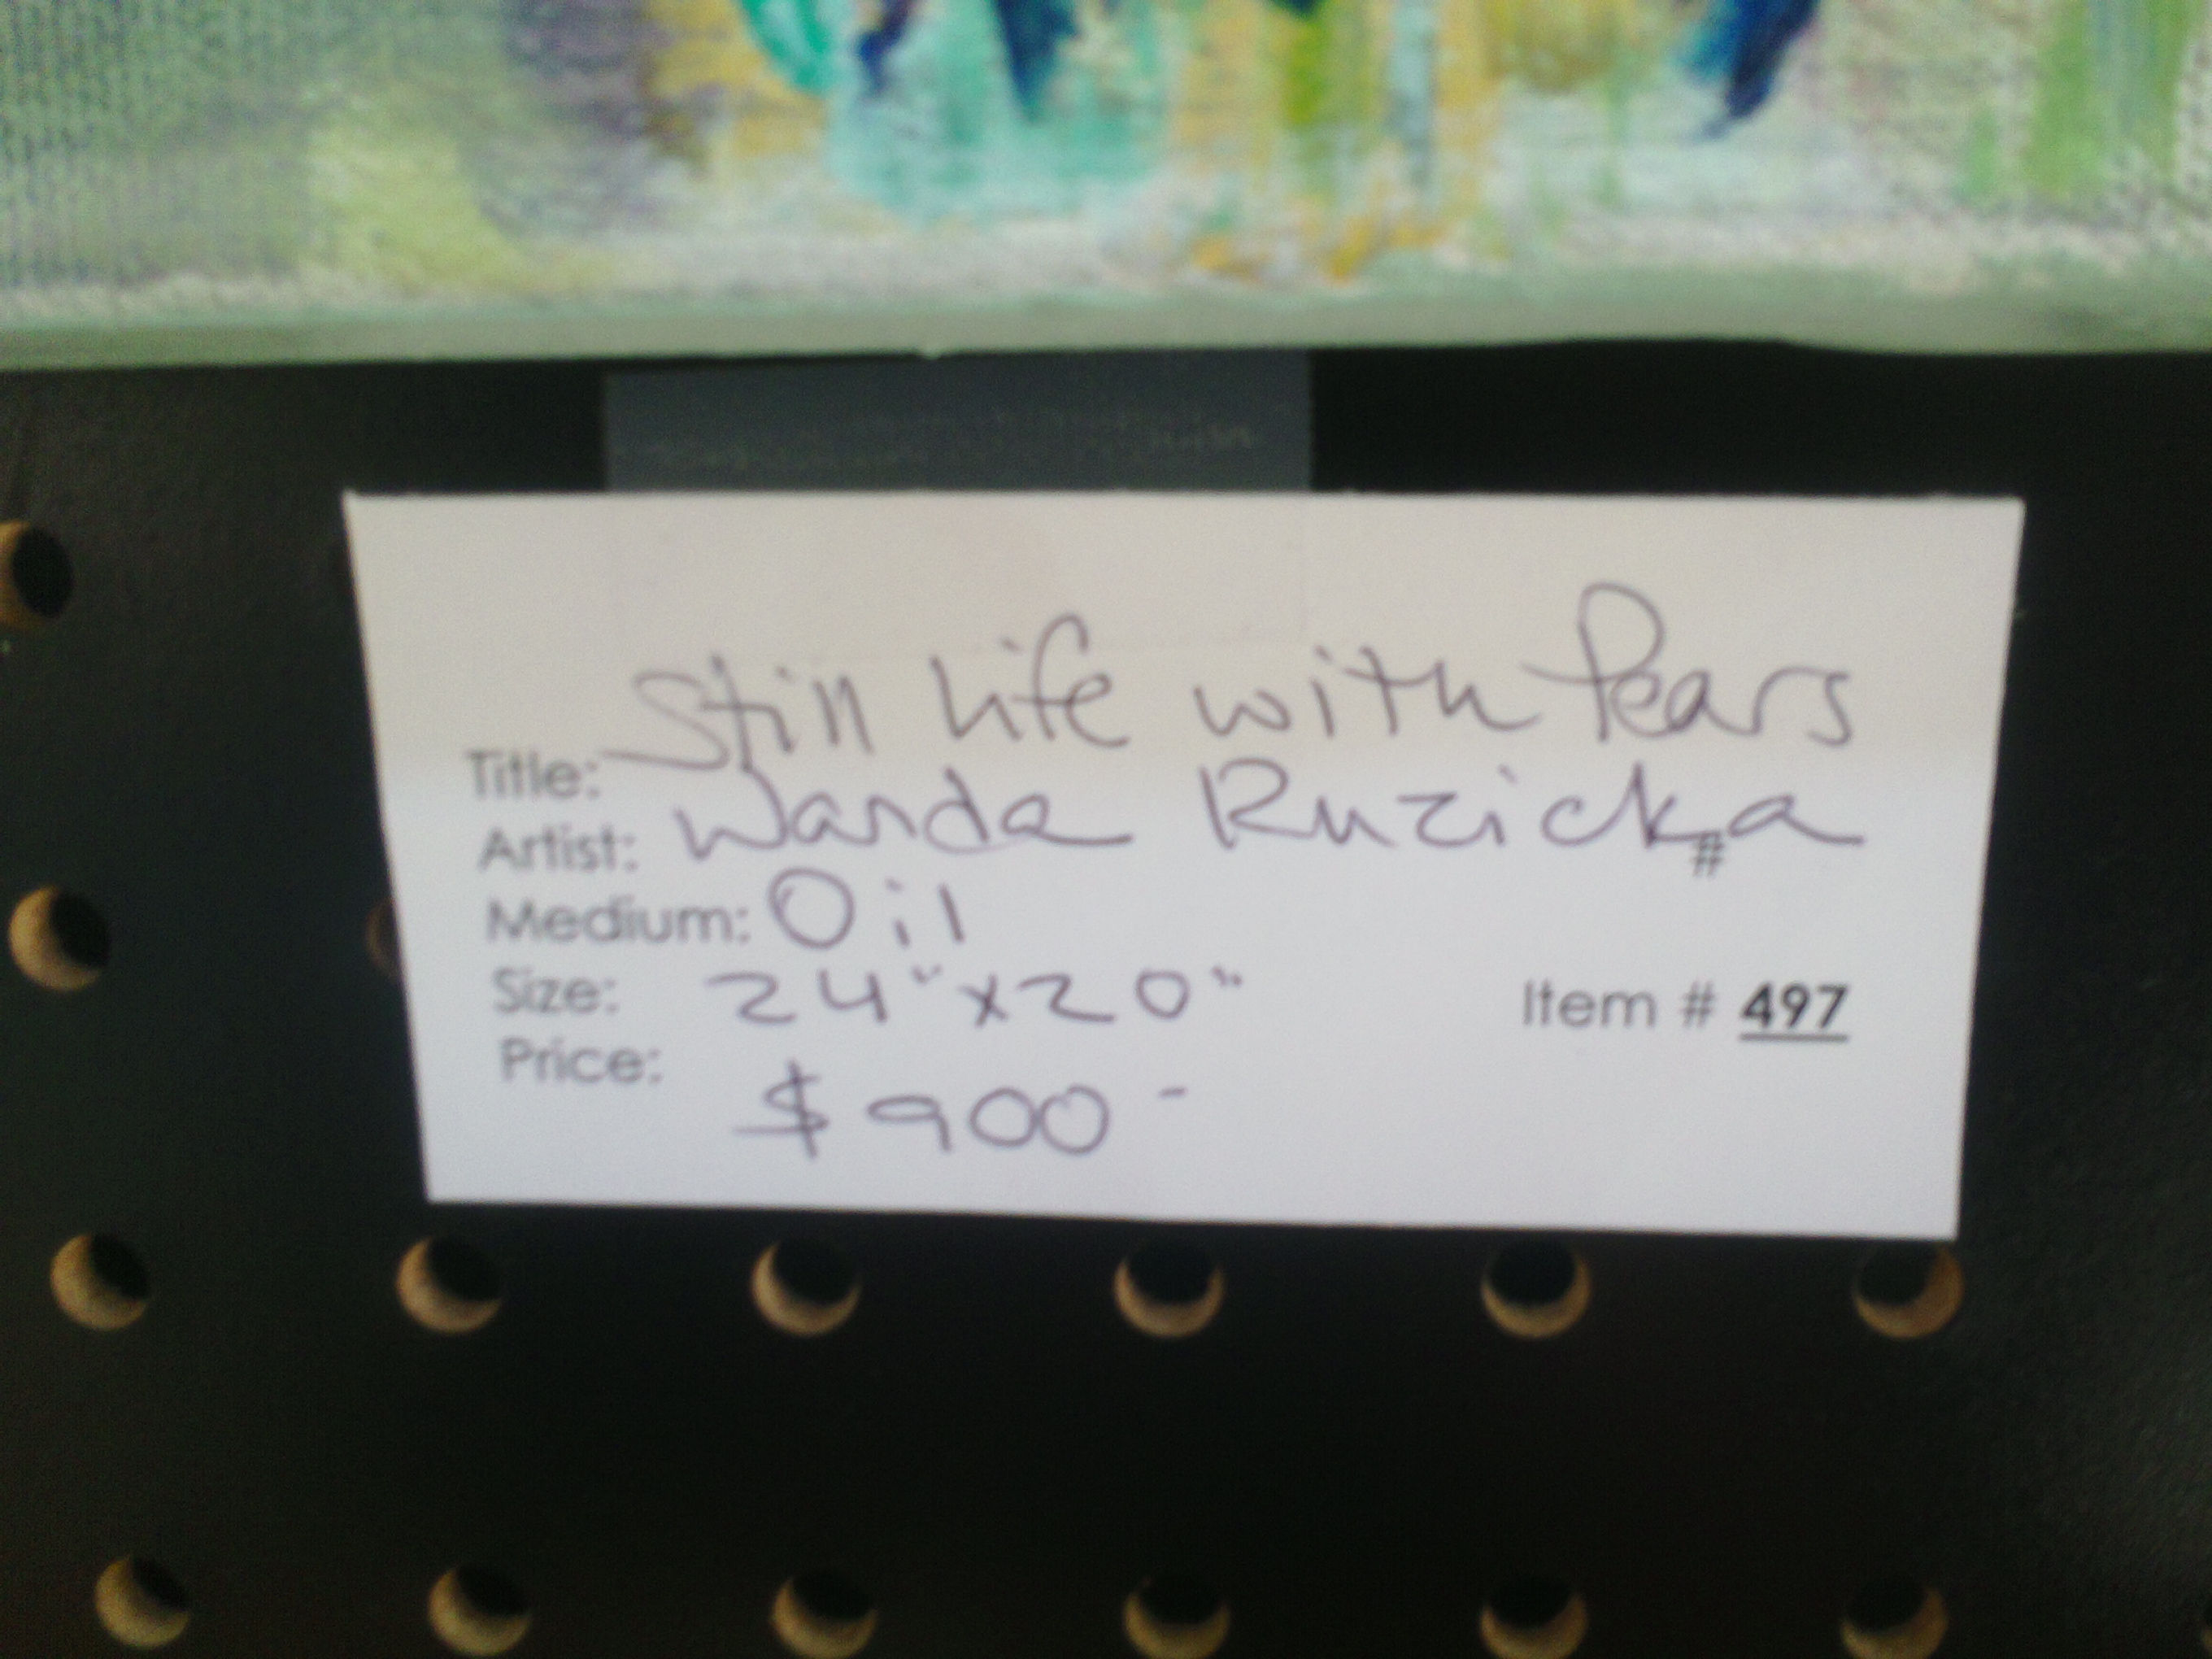 Title: Still Life with Pears
Artist: Wanda Ruzicka
#
Medium: Oil
Size: 24" x 20"
Item # 497
Price: $900-